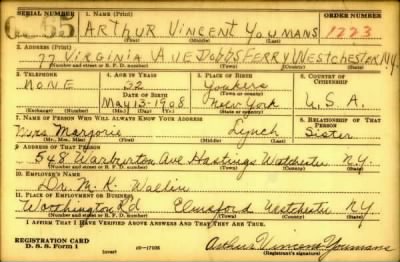 SERIAL NUMBER 1. NAME (Print) ORDER NUMBER
65 ARTHUR VINCENT YOUMANS 1223
(First) (Middle) (Last)
2. ADDRESS (Print)
77 VIRGINIA AVE DOBBS FERRY WESTCHESTER N.Y.
(Number and street or R. F. D. number) (Town) (County) (State)
3. TELEPHONE 4. AGE IN YEARS 5. PLACE OF BIRTH 6. COUNTRY OF CITIZENSHIP
NONE 32 Yonkers
DATE OF BIRTH (Town or county)
May 13-1908 New York U.S.A.
(Exchange) (Number) (Mo.) (Day) (Yr.) (State or country)
7. NAME OF PERSON WHO WILL ALWAYS KNOW YOUR ADDRESS 8. RELATIONSHIP OF THAT PERSON
Mrs Marjorie Lynch Sister
(Mr., Mrs., Miss) (First) (Middle) (Last)
9. ADDRESS OF THAT PERSON
548 Warburton Ave Hastings Westchester N.Y.
(Number and street or R. F. D. number) (Town) (County) (State)
10. EMPLOYER'S NAME
Dr. M. K. Wallin
11. PLACE OF EMPLOYMENT OR BUSINESS
Worthington Rd Elmsford Westchester N.Y.
(Number and street or R. F. D. number) (Town) (County) (State)
I AFFIRM THAT I HAVE VERIFIED ABOVE ANSWERS AND THAT THEY ARE TRUE.
REGISTRATION CARD
D. S. S. Form 1 (over) Arthur Vincent Youmans
(Registrant's signature)